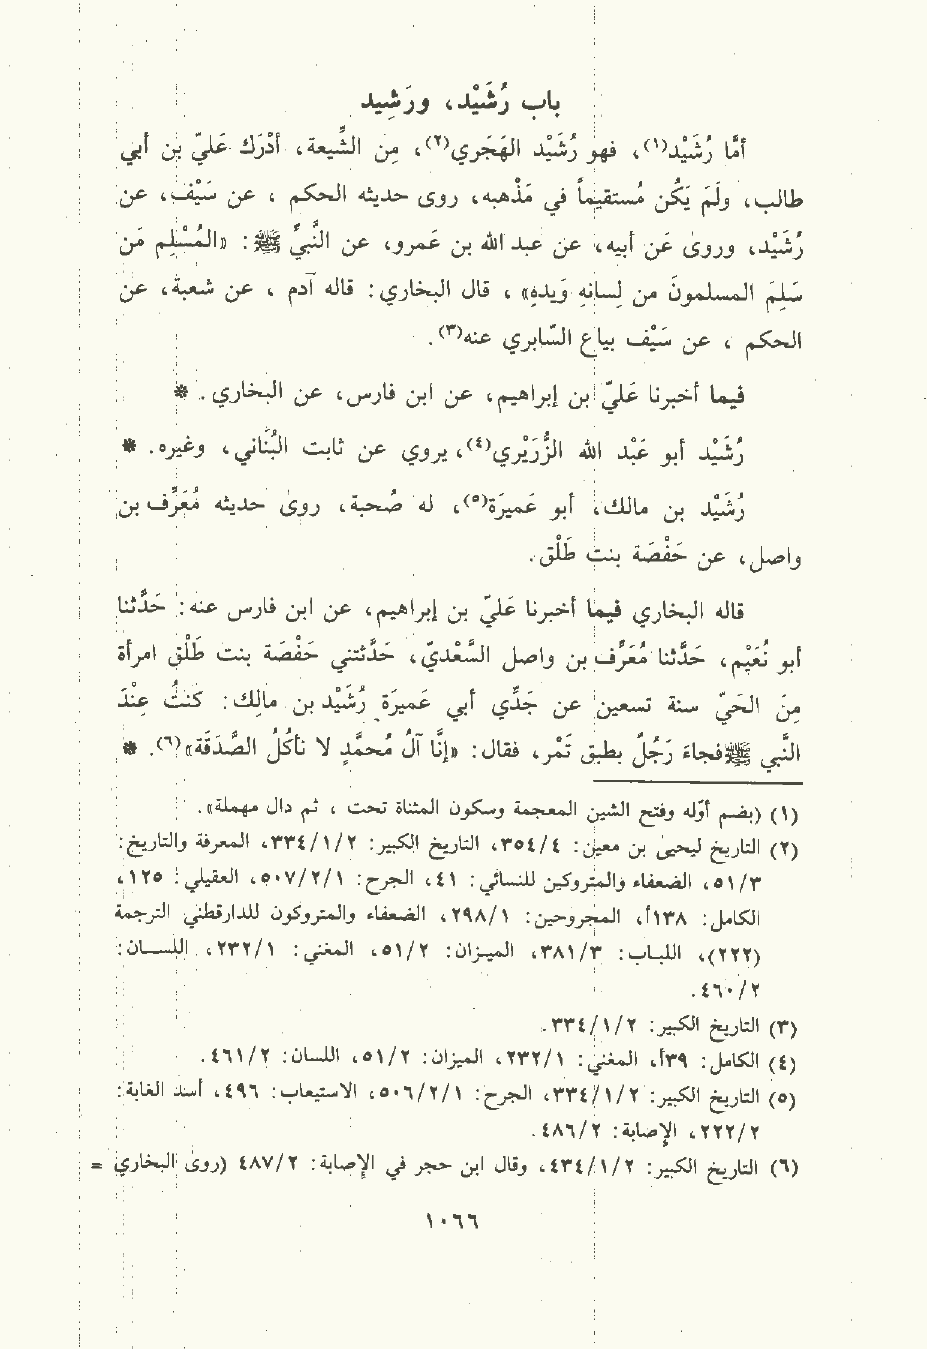 باب رُشَيْد، ورَشِيد
أمَّا رُشَيْد(١)، فهو رُشَيْد الهَجَري(٢)، مِن الشِّيعة، أدْرَك عَليّ بن أبي
طالب، ولَم يَكُن مُستقيماً في مَذْهبه، روى حديثه الحكم ، عن سَيْف، عن
رُشَيْد، وروىٰ عَن أبيه، عن عبد الله بن عَمرو، عن النَّبيِّ ﷺ: «المُسْلِم مَن
سَلِمَ المسلمونَ من لِسانِهِ وَيدِهِ» ، قال البخاري: قاله آدم ، عن شعبة، عن
الحكم ، عن سَيْف بياع السَّابري عنه(٣).
فيما أخبرنا عَليّ بن إبراهيم، عن ابن فارس، عن البخاري. *
رُشَيْد أبو عَبْد الله الزُّرَيْري(٤)، يروي عن ثابت البُنَاني، وغيره. *
رُشَيْد بن مالك، أبو عَميرَة(٥)، له صُحبة، روىٰ حديثه مُعَرِّف بن
واصل، عن حَفْصَة بنت طَلْق.
قاله البخاري فيما أخبرنا عَليّ بن إبراهيم، عن ابن فارس عنه: حَدَّثنا
أبو نُعَيْم، حَدَّثنا مُعَرِّف بن واصل السَّعْديّ، حَدَّثتني حَفْصَة بنت طَلْق امرأة
مِنَ الحَيّ سنة تسعين عن جَدِّي أبي عَميرَة رُشَيْد بن مالِك: كنتُ عِنْدَ
النَّبي ﷺ فجاءَ رَجُلٌ بطبق تَمْر، فقال: «إنَّا آلُ مُحمَّدٍ لا نأكُلُ الصَّدَقَة»(٦). *
(١) (بضم أوّله وفتح الشين المعجمة وسكون المثناة تحت ، ثم دال مهملة».
(٢) التاريخ ليحيىٰ بن معين: ٣٥٤/٤، التاريخ الكبير: ٣٣٤/١/٢، المعرفة والتاريخ:
٥١/٣، الضعفاء والمتروكين للنسائي: ٤١، الجرح: ٥٠٧/٢/١، العقيلي: ١٢٥،
الكامل: ١٣٨أ، المجروحين: ٢٩٨/١، الضعفاء والمتروكون للدارقطني الترجمة
(٢٢٢)، اللبـاب: ٣٨١/٣، الميـزان: ٥١/٢، المغني: ٢٣٢/١، اللســان:
٤٦٠/٢.
(٣) التاريخ الكبير: ٣٣٤/١/٢.
(٤) الكامل: ٣٩أ، المغني: ٢٣٢/١، الميزان: ٥١/٢، اللسان: ٤٦١/٢.
(٥) التاريخ الكبير: ٣٣٤/١/٢، الجرح: ٥٠٦/٢/١، الاستيعاب: ٤٩٦، أسد الغابة:
٢٢٢/٢، الإصابة: ٤٨٦/٢.
(٦) التاريخ الكبير: ٤٣٤/١/٢، وقال ابن حجر في الإصابة: ٤٨٧/٢ (روىٰ البخاري =
١٠٦٦